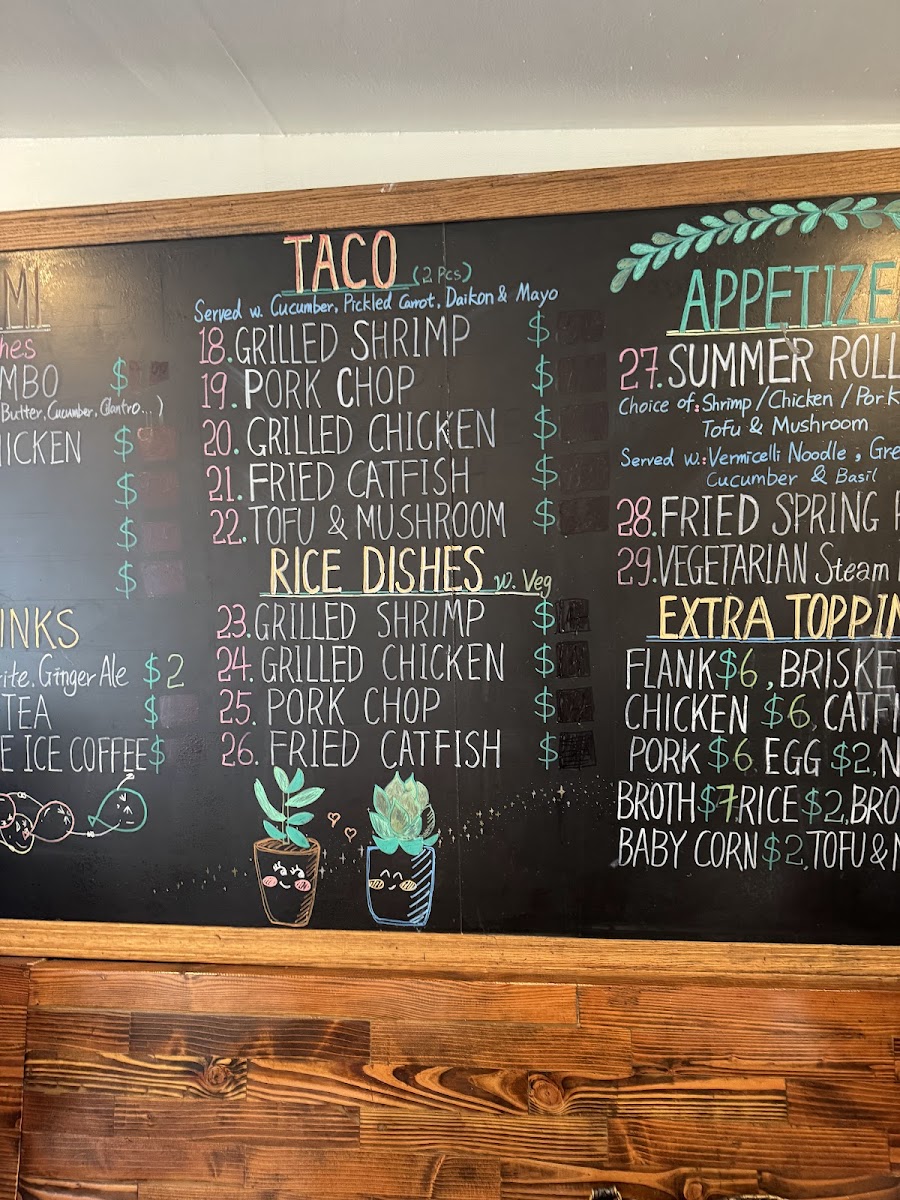 MI
MBO
$
Butter, Cucumber, Cilantro...)
HICKEN $
$
$
$
INKS
Ginger Ale $2
TEA $
ICE COFFEE $
TACO (2 Pcs)
Served w. Cucumber, Pickled Carrot, Daikon & Mayo
18. GRILLED SHRIMP $
19. PORK CHOP $
20. GRILLED CHICKEN $
21. FRIED CATFISH $
22. TOFU & MUSHROOM $
RICE DISHES w. Veg
23. GRILLED SHRIMP $
24. GRILLED CHICKEN $
25. PORK CHOP $
26. FRIED CATFISH $
APPETIZE
27. SUMMER ROLL
Choice of: Shrimp / Chicken / Pork
Tofu & Mushroom
Served w.: Vermicelli Noodle, Gre
Cucumber & Basil
28. FRIED SPRING
29. VEGETARIAN Steam
EXTRA TOPPIN
FLANK $6, BRISKET
CHICKEN $6, CATFI
PORK $6, EGG $2, N
BROTH $7, RICE $2, BRO
BABY CORN $2, TOFU &